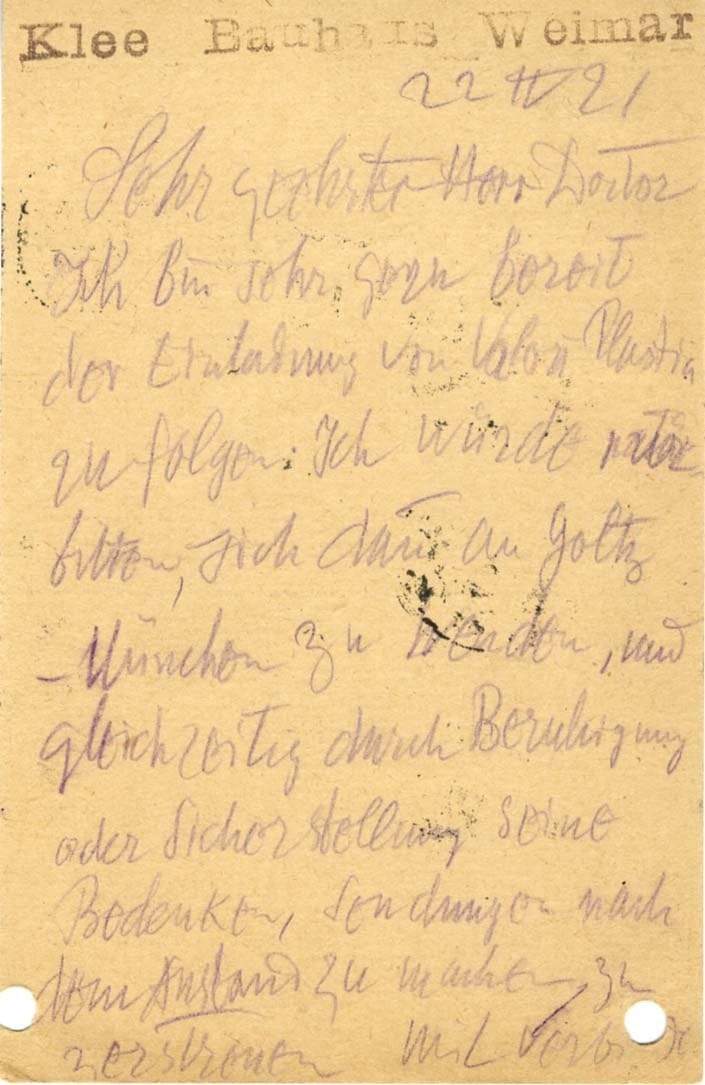 Klee Bauhaus Weimar
22 IV 21
Sehr geehrter Herr Doctor
Ich bin sehr gern bereit
der Einladung von Valori Plastici
zu folgen. Ich würde
bitten, sich dann an Goltz
-München zu wenden, und
gleichzeitig durch Beruhigung
oder Sicherstellung seine
Bedenken, Sendungen nach
dem Ausland zu machen, zu
zerstreuen Mit